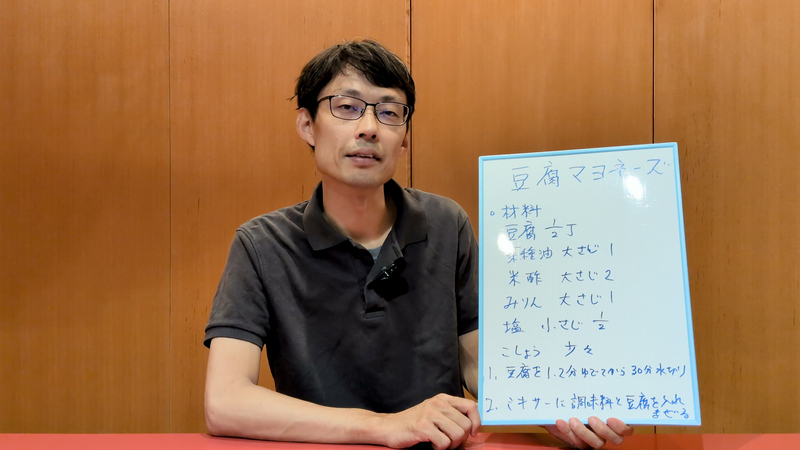 豆腐マヨネーズ
○材料
豆腐 1/2丁
菜種油 大さじ1
米酢 大さじ2
みりん 大さじ1
塩 小さじ 1/2
こしょう 少々
1. 豆腐を1.2分ゆでてから30分水切り
2. ミキサーに調味料と豆腐を入れ
まぜる